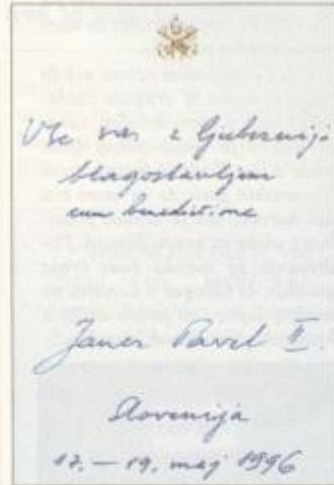 Vse vas z ljubeznijo
blagoslavljam
cum benedictione
Janez Pavel II
Slovenija
17. — 19. maj 1996